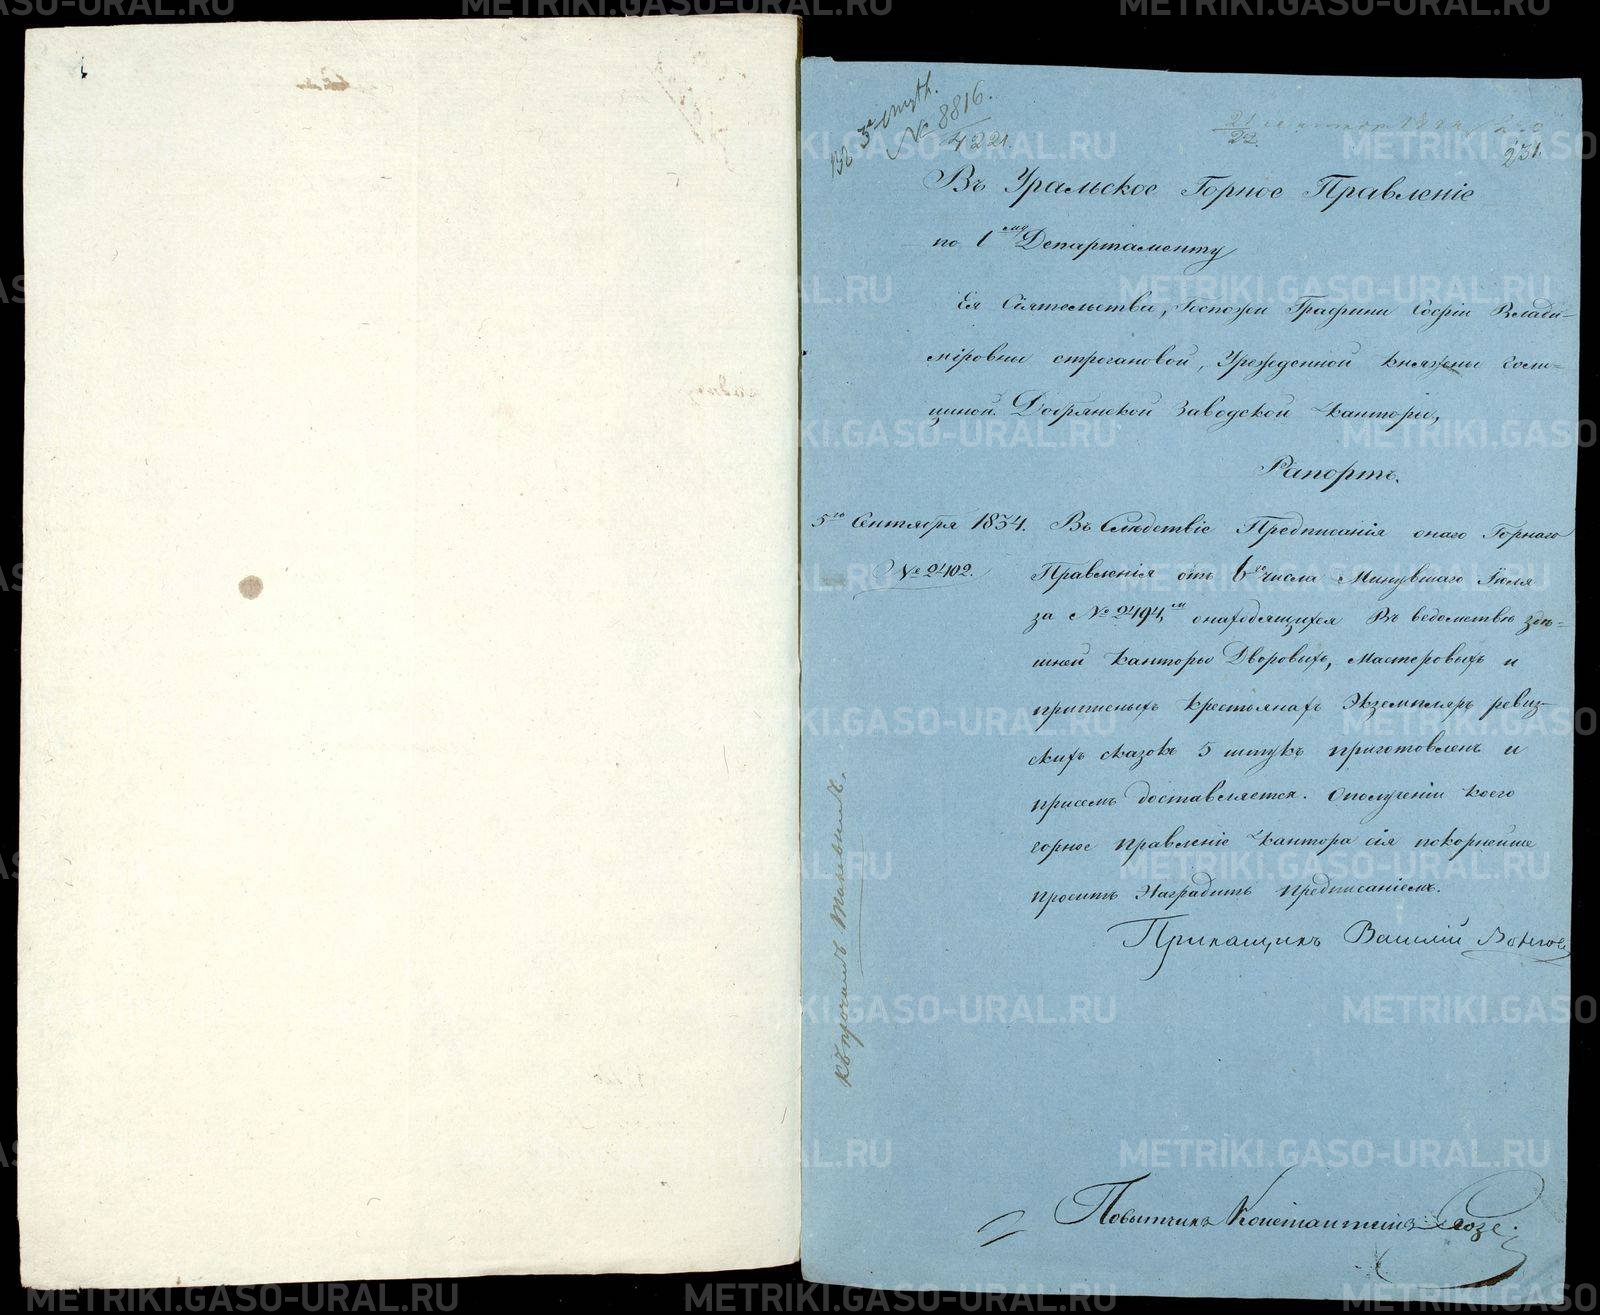 № 8816.
4221.
21
22
231.
Въ Уральское Горное Правленіе
по 1му Департаменту
Ея Сіятельства, Госпожи Графини Софіи Влади-
міровны Строгановой, Урожденной Княжны Голи-
цыной. Добрянской Заводской Канторы,
Рапортъ.
5го Сентября 1834.
№ 2402.
Въ Слѣдствіе Предписанія онаго Горнаго
Правленія отъ 6го числа Минувшаго Іюля
за № 2494м онаходящихся Въ ведомствѣ здѣ-
шней Канторы Дворовыхъ, Мастеровыхъ и
приписныхъ Крестьянахъ Экземпляръ ревиз-
скихъ сказокъ 5 штукъ приготовленъ и
присемъ доставляется. Ополученіи коего
горное правленіе Кантора сія покорнейше
проситъ Наградить предписаніемъ.
Прикащикъ Василій
Повытчикъ Константинъ
Къ прочимъ таковымъ.
METRIKI.GASO-URAL.RU